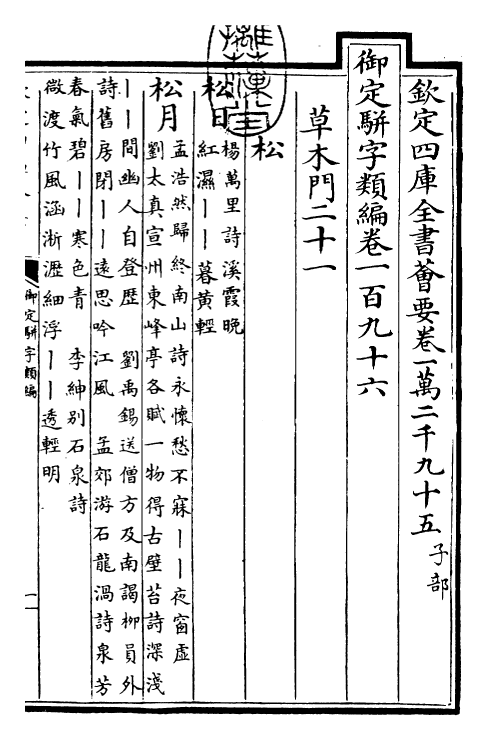 欽定四庫全書薈要卷一萬二千九十五 子部
御定駢字類編卷一百九十六
草木門二十一
松
松日 楊萬里詩溪霞晚
紅濕丨丨暮黄輕
松月 孟浩然歸終南山詩永懷愁不寐丨丨夜窗虛
劉太真宣州東峰亭各賦一物得古壁苔詩深淺
丨丨間幽人自登歷 劉禹錫送僧方及南謁柳員外
詩舊房閉丨丨遠思吟江風 孟郊游石龍渦詩泉芳
春氣碧丨丨寒色青 李紳别石泉詩
微渡竹風涵淅瀝細浮丨丨透輕明
御定駢字類編